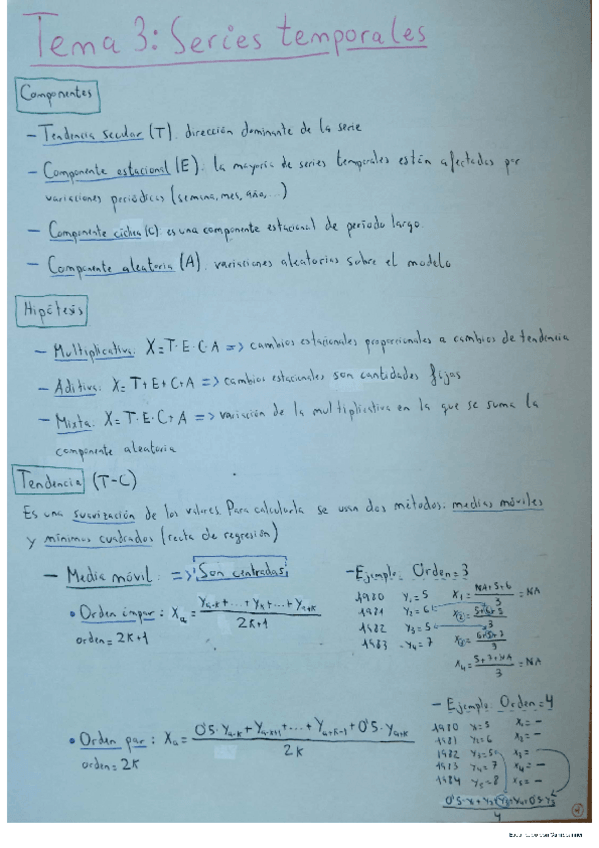 Tema 3: Series temporales
Componentes
- Tendencia secular (T): dirección dominante de la serie
- Componente estacional (E): la mayoría de series temporales están afectadas por
variaciones periódicas (semana, mes, año, ...)
- Componente cíclica (C): es una componente estacional de período largo
- Componente aleatoria (A): variaciones aleatorias sobre el modelo
Hipótesis
- Multiplicativa: X=T·E·C·A => cambios estacionales proporcionales a cambios de tendencia
- Aditiva: X=T+E+C+A => cambios estacionales son cantidades fijas
- Mixta: X=T·E·C+A => variación de la multiplicativa en la que se suma la
componente aleatoria
Tendencia (T-C)
Es una suavización de los valores. Para calcularla se usan dos métodos: medias móviles
y mínimos cuadrados (recta de regresión)
- Media móvil: => ¡Son centradas!
• Orden impar: Xa = (Ya-k + ... + Yk + ... + Ya+k) / (2k+1)
orden = 2k+1
- Ejemplo: Orden=3
1980 Y1=5 X1 = (NA+5+6)/3 = NA
1981 Y2=6 X2 = (5+6+5)/3
1982 Y3=5 X3 = (6+5+7)/3
1983 Y4=7 X4 = (5+7+NA)/3 = NA
• Orden par: Xa = (0'5·Ya-k + Ya-k+1 + ... + Ya+k-1 + 0'5·Ya+k) / 2k
orden = 2k
- Ejemplo: Orden=4
1980 Y1=5 X1= -
1981 Y2=6 X2= -
1982 Y3=5 X3=
1983 Y4=7 X4= -
1984 Y5=8 X5= -
4